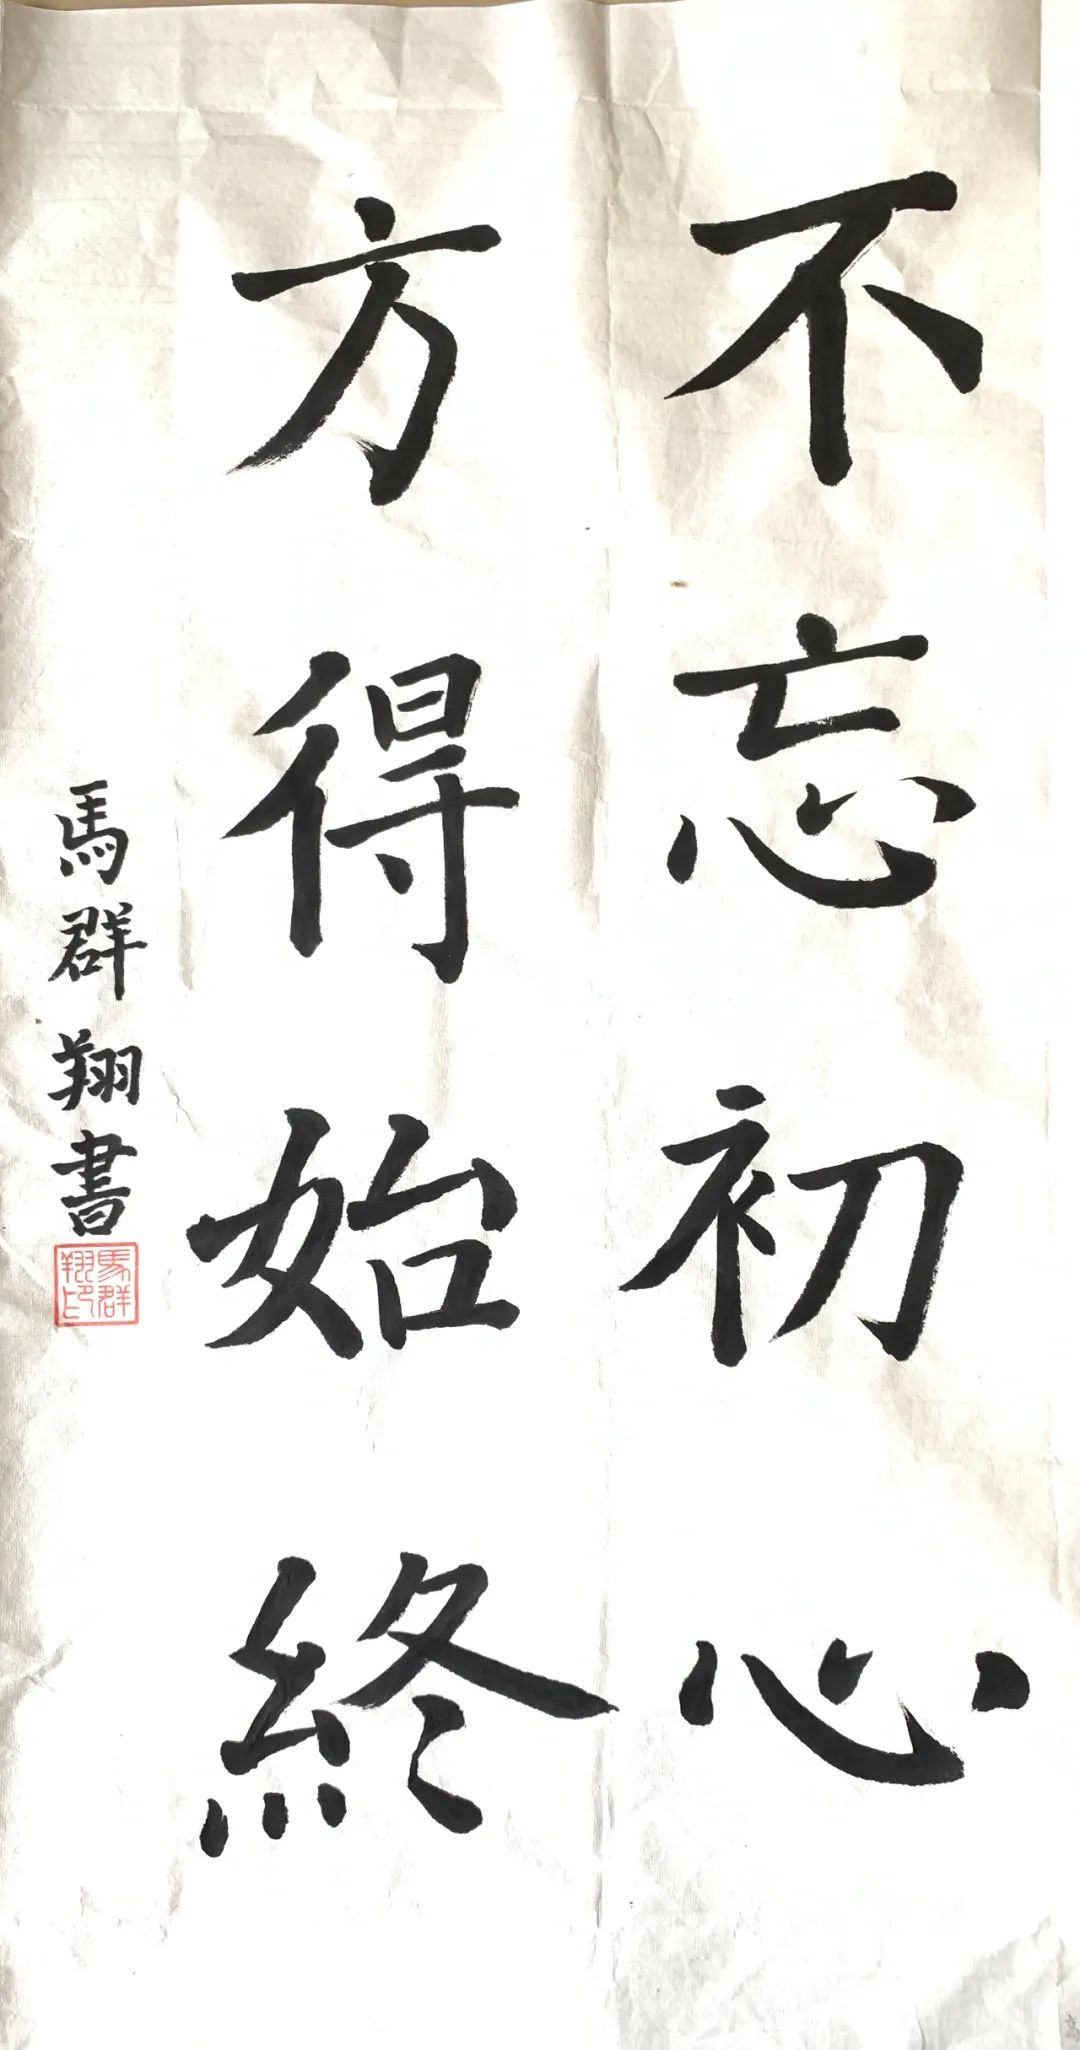 不忘初心
方得始終
馬群翔書
馬群翔印